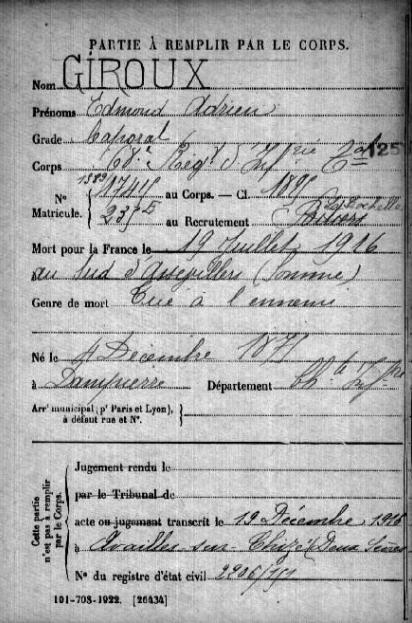 PARTIE À REMPLIR PAR LE CORPS.
Nom GIROUX
Prénoms Edmond Adrien
Grade Caporal
Corps 68e Régt d'Infrie Cal 125
N° 1589 au Corps. — Cl. 189
Matricule. au Recrutement La Rochelle Poitiers
Mort pour la France le 19 Juillet 1916
au Sud d'Assevillers (Somme)
Genre de mort Tué à l'ennemi
Né le 4 Décembre 187
à Dampierre Département Chte Infre
Arr' municipal (p' Paris et Lyon),
à défaut rue et N°.
Cette partie n'est pas à remplir par le Corps.
Jugement rendu le
par le Tribunal de
acte ou jugement transcrit le 19 Décembre 1916
à Availles sur Chizé (Deux Sèvres
N° du registre d'état civil 2206/
101-708-1922. [26434]